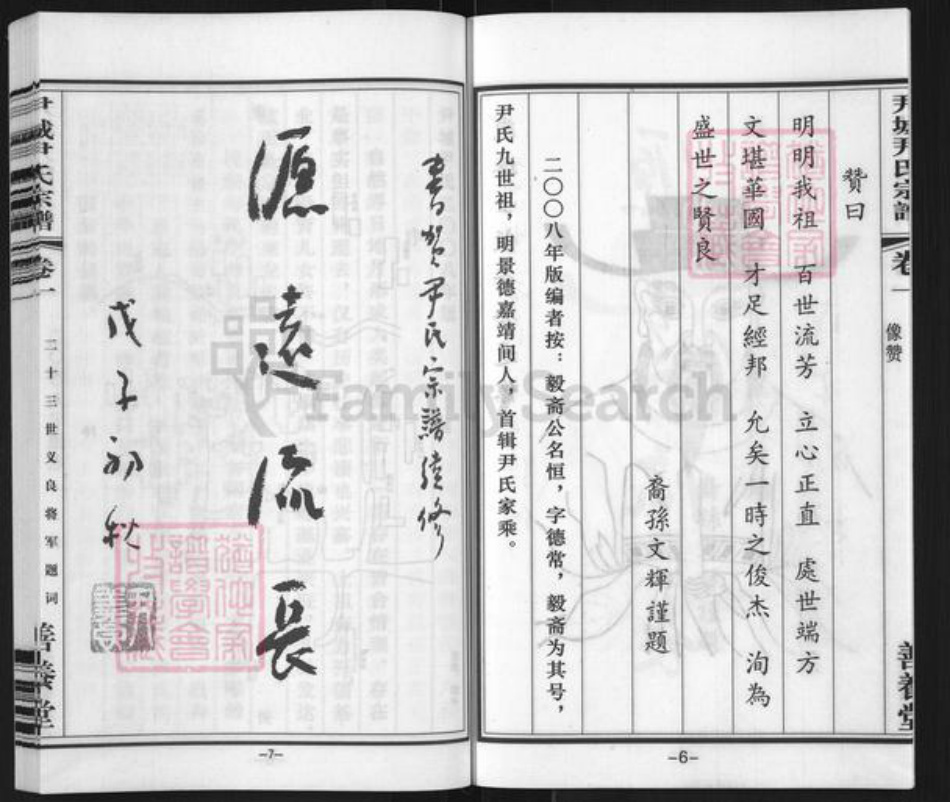 尹城尹氏宗譜
卷一
像赞
善養堂
赞曰
明明我祖 百世流芳 立心正直 處世端方
文堪華國 才足經邦 允矣一時之俊杰 洵為
盛世之賢良
裔孫文輝謹題
二〇〇八年版编者按：毅斋公名恒，字德常，毅斋为其号，
尹氏九世祖，明景德嘉靖间人，首辑尹氏家乘。
-6-
書賀尹氏宗譜續修
源遠流長
戊子初秋
尹城尹氏宗譜
卷一
二十三世义良将军题词
善養堂
-7-
FamilySearch